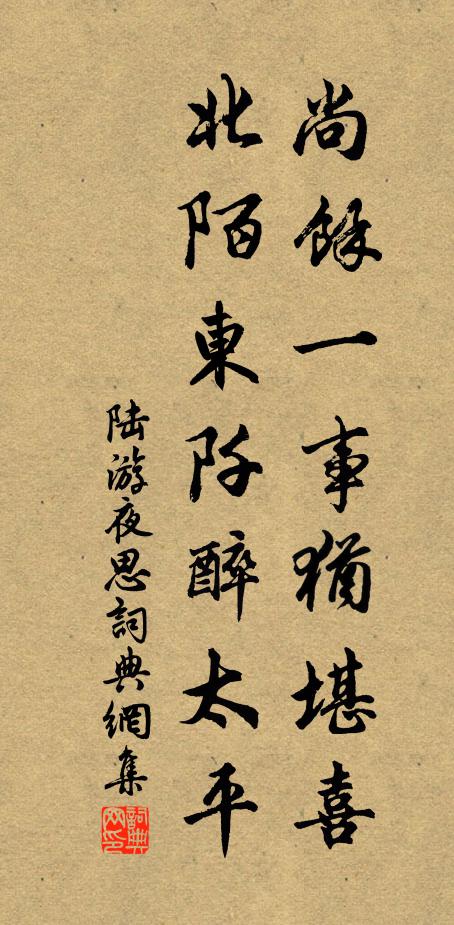 尚餘一事猶堪喜
北陌東阡醉太平
陸游夜思詞典網集
詞典网印